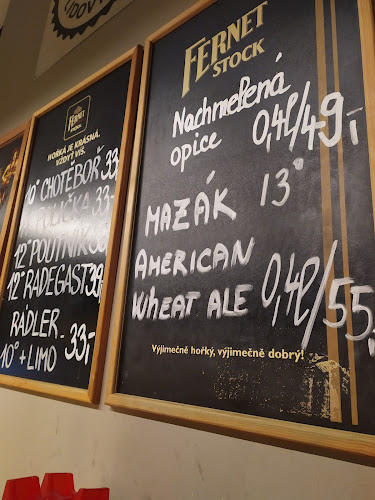 LIDOV
FERNET
STOCK
HOŘKÁ JE KRÁSNÁ.
VŽDYŤ VÍŠ.
10° CHOTĚBOŘ 33,-
POLIČKA 33,-
12° POUTNÍK
12° RADEGAST 39,
RADLER
10° + LIMO 33,-
FERNET
STOCK
Nachmelená
opice 0,4l/49,-
MAZÁK 13°
AMERICAN
WHEAT ALE 0,4l/55,-
Výjimečně hořký, výjimečně dobrý!